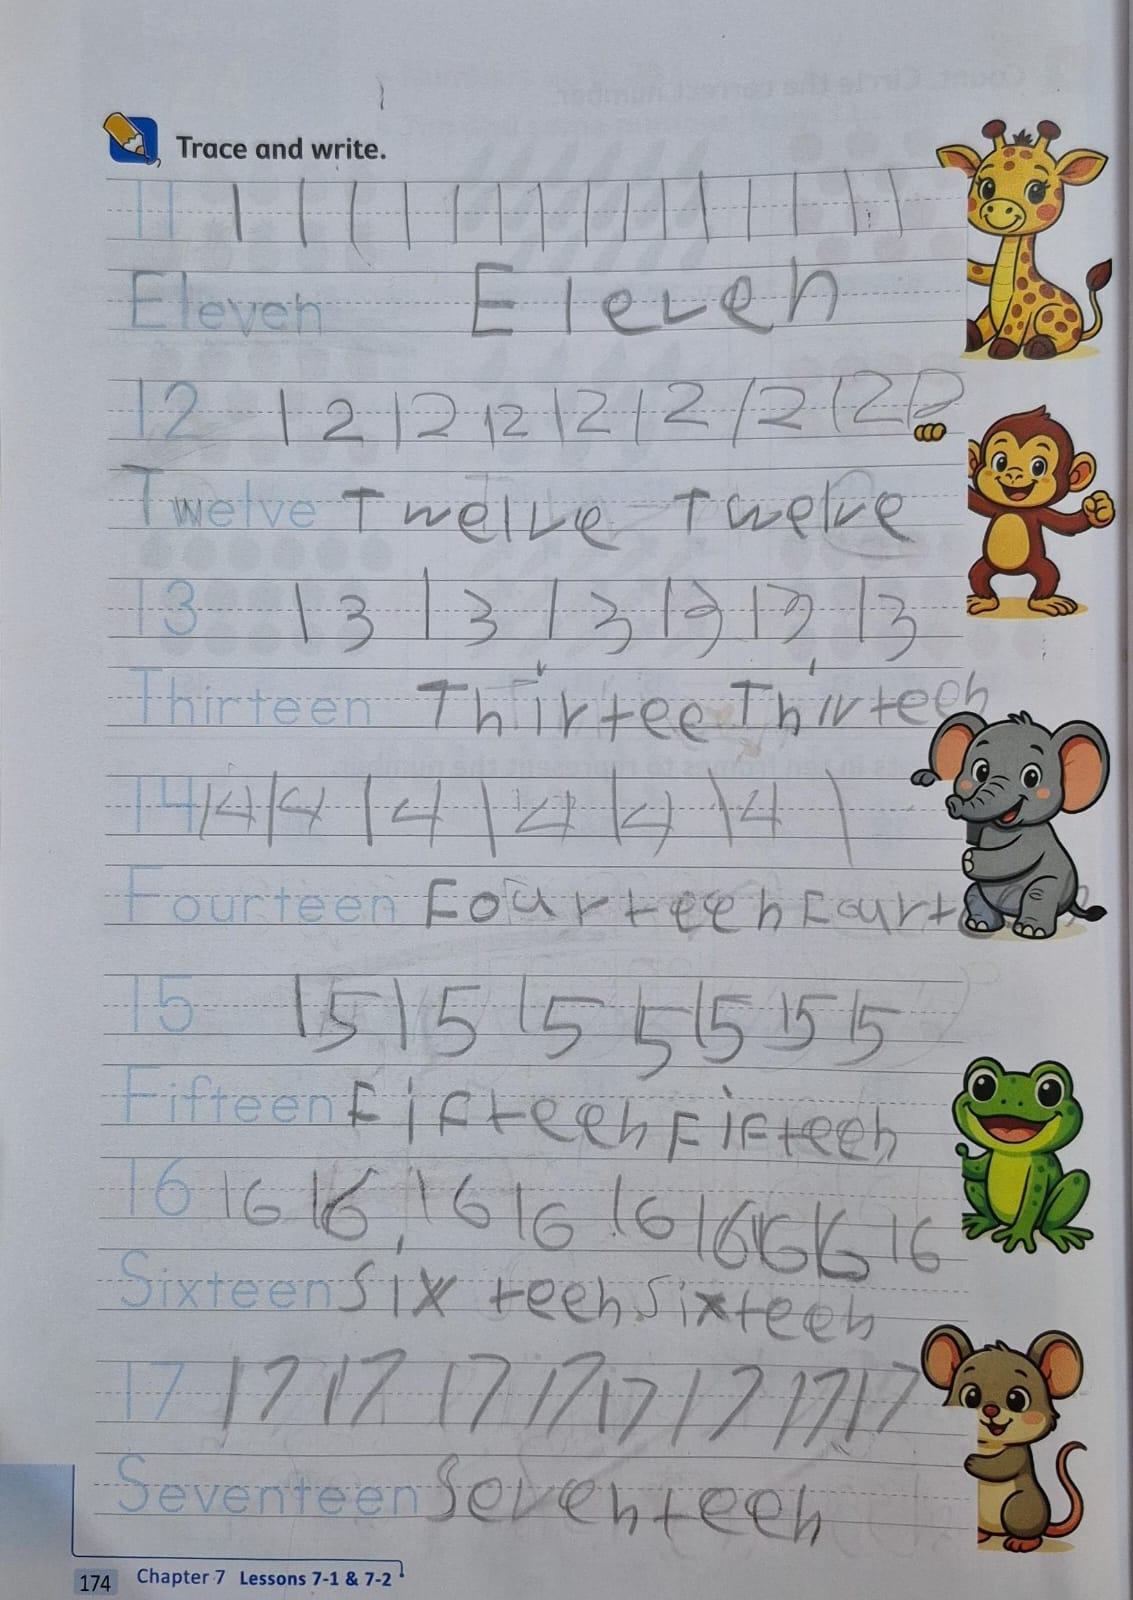 Trace and write.
11 1 1 1 1 1 1 1 1 1 1 1 1 1 1 1 1
Eleven Eleven
12 12 12 12 12 12 12 12 12
Twelve Twelve Twelve
13 13 13 13 13 13 13
Thirteen Thirtee Thirteen
14 14 14 14 14 14 14 1
Fourteen Fourteen Fourteen
15 15 15 15 5 15 15 15
Fifteen Fifteen Fifteen
16 16 16 16 16 16 16 16 16 16
Sixteen Six teen Sixteen
17 17 17 17 17 17 17 17 17
Seventeen Seventeen
174 Chapter 7 Lessons 7-1 & 7-2